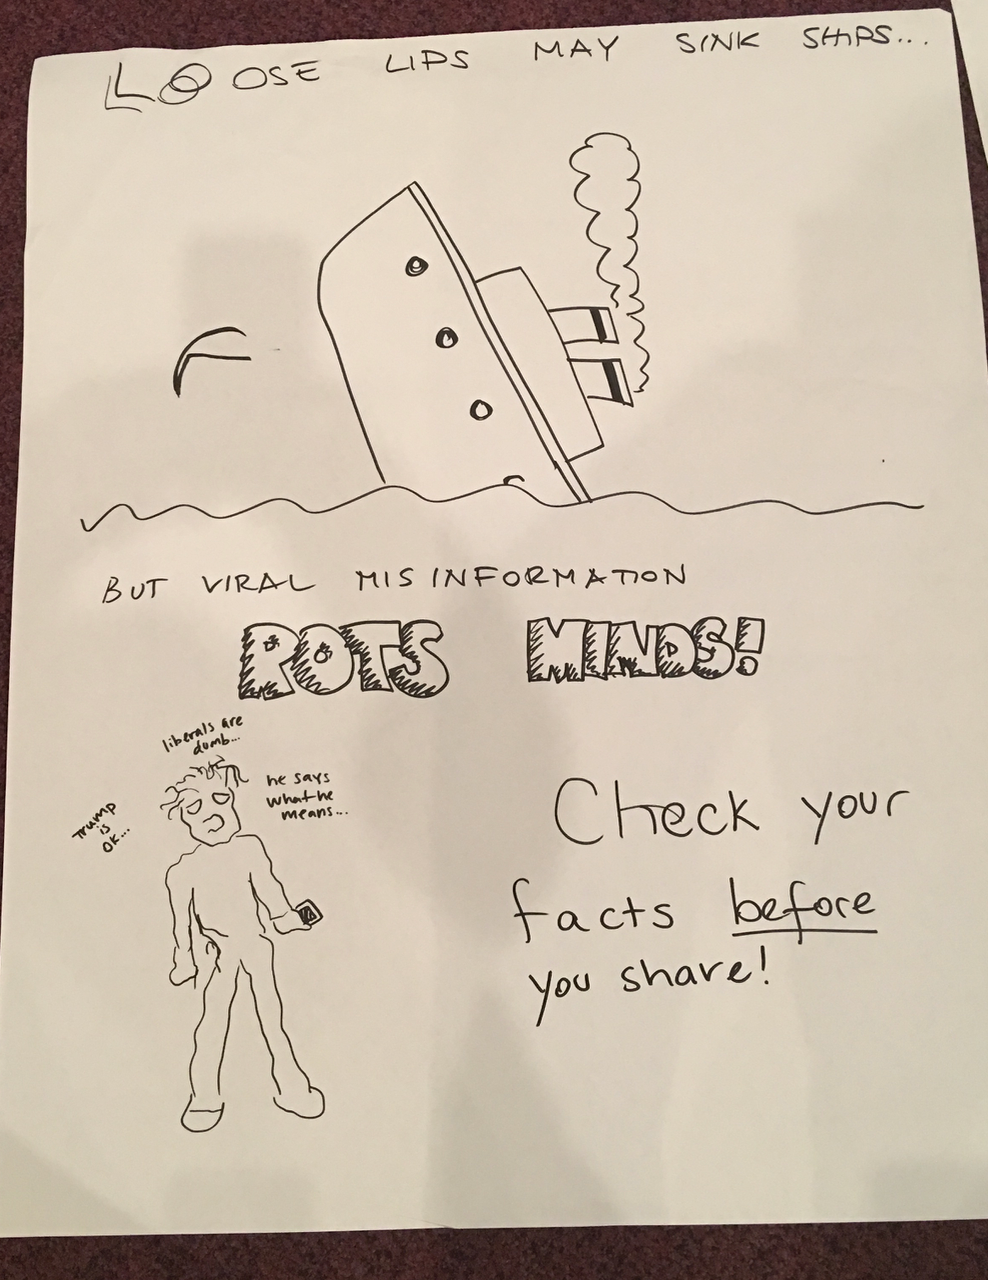 LOOSE LIPS MAY SINK SHIPS...
BUT VIRAL MISINFORMATION
ROTS MINDS!
liberals are
dumb...
he says
what he
means...
Trump
is
OK...
Check your
facts before
you share!